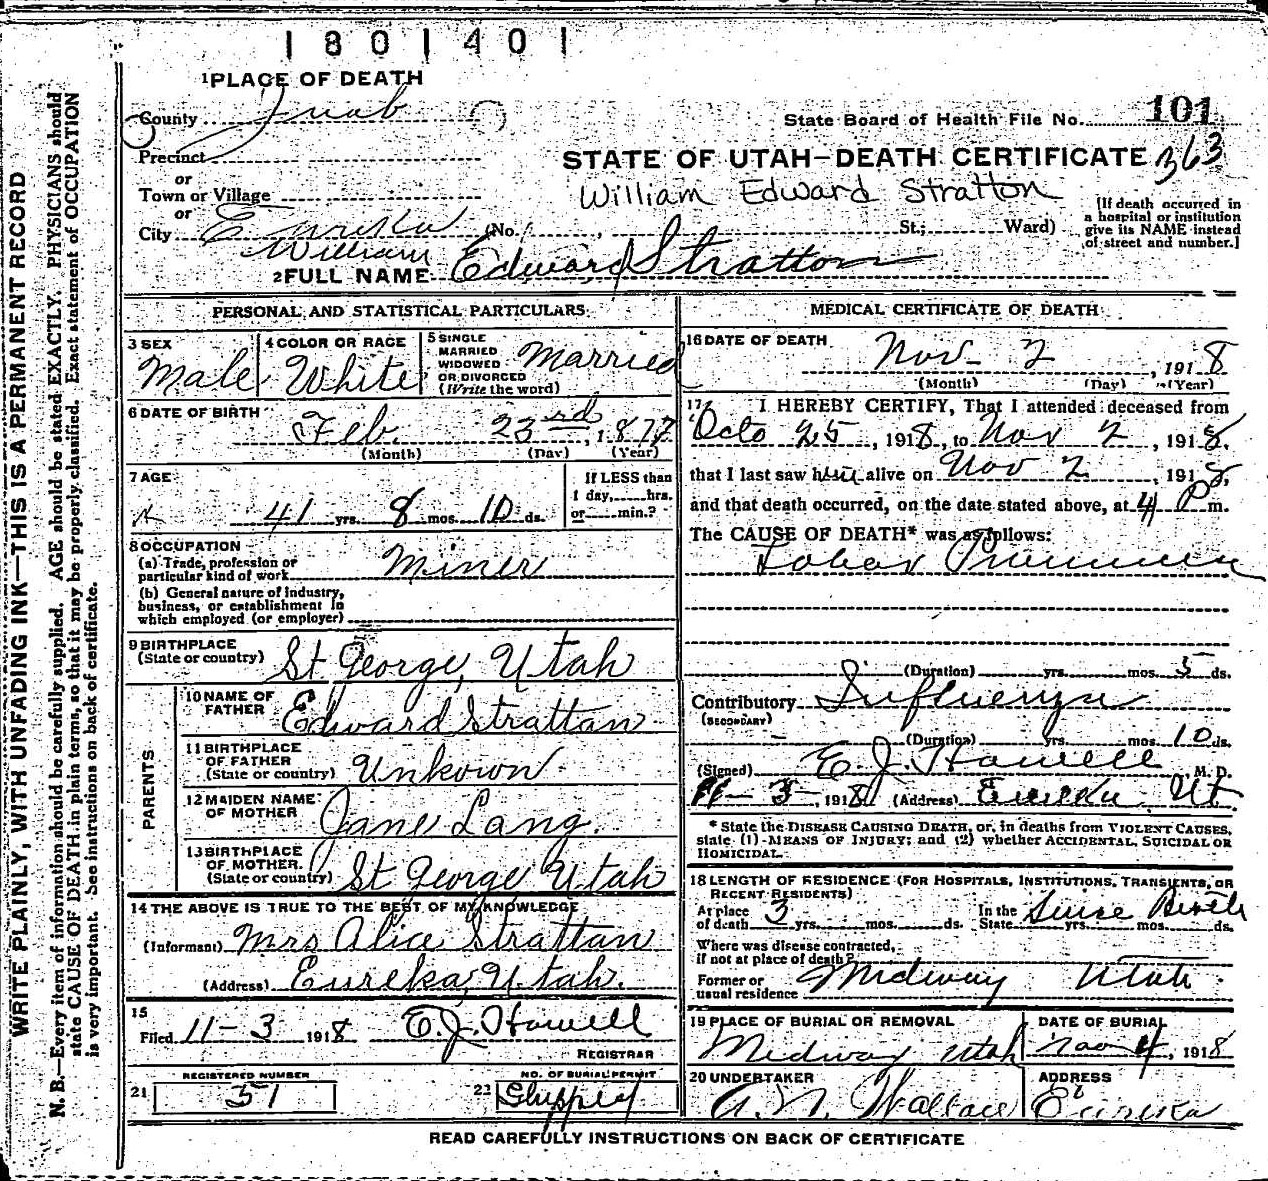 1801401
1 PLACE OF DEATH
County Juab
State Board of Health File No. 101
Precinct
STATE OF UTAH—DEATH CERTIFICATE 363
or
Town or Village
William Edward Stratton
or
City Eureka (No. , St.; Ward)
[If death occurred in a hospital or institution give its NAME instead of street and number.]
William
2 FULL NAME Edward Stratton
PERSONAL AND STATISTICAL PARTICULARS.
3 SEX
Male
4 COLOR OR RACE
White
5 SINGLE
MARRIED
WIDOWED
OR DIVORCED
(Write the word)
Married
6 DATE OF BIRTH
Feb. 23rd, 1877
(Month) (Day) (Year)
7 AGE
41 yrs. 8 mos. 10 ds.
If LESS than
1 day, hrs.
or min.?
8 OCCUPATION
(a) Trade, profession or
particular kind of work Miner
(b) General nature of industry,
business, or establishment in
which employed (or employer)
9 BIRTHPLACE
(State or country) St George, Utah
PARENTS
10 NAME OF
FATHER Edward Strattan
11 BIRTHPLACE
OF FATHER
(State or country) Unkown
12 MAIDEN NAME
OF MOTHER Jane Lang.
13 BIRTHPLACE
OF MOTHER.
(State or country) St George Utah
14 THE ABOVE IS TRUE TO THE BEST OF MY KNOWLEDGE
(Informant) Mrs Alice Strattan
(Address) Eureka, Utah.
15
Filed 11-3 1918 E. J. Howell
REGISTRAR
REGISTERED NUMBER
21 51
NO. OF BURIAL PERMIT
22 Shipped
MEDICAL CERTIFICATE OF DEATH
16 DATE OF DEATH
Nov- 2, 1918
(Month) (Day) (Year)
17 I HEREBY CERTIFY, That I attended deceased from
Octo 25, 1918, to Nov 2, 1918,
that I last saw him alive on Nov 2, 1918,
and that death occurred, on the date stated above, at 4 P m.
The CAUSE OF DEATH* was as follows:
Lobar Pneumonia
(Duration) yrs. mos. 5 ds.
Contributory Influenza
(SECONDARY)
(Duration) yrs. mos. 10 ds.
(Signed) E. J. Howell M. D.
11-3-, 1918 (Address) Eureka Ut.
* State the DISEASE CAUSING DEATH, or, in deaths from VIOLENT CAUSES,
state (1) MEANS OF INJURY; and (2) whether ACCIDENTAL, SUICIDAL OR
HOMICIDAL.
18 LENGTH OF RESIDENCE (FOR HOSPITALS, INSTITUTIONS, TRANSIENTS, OR
RECENT RESIDENTS)
At place
of death 3 yrs. mos. ds.
In the
State Since Birth yrs. mos. ds.
Where was disease contracted,
if not at place of death?
Former or
usual residence Midway Utah
19 PLACE OF BURIAL OR REMOVAL
Midway Utah
DATE OF BURIAL
Nov 4, 1918
20 UNDERTAKER
A. N. Wallace
ADDRESS
Eureka
READ CAREFULLY INSTRUCTIONS ON BACK OF CERTIFICATE
WRITE PLAINLY, WITH UNFADING INK—THIS IS A PERMANENT RECORD
N. B.—Every item of information should be carefully supplied. AGE should be stated EXACTLY. PHYSICIANS should
state CAUSE OF DEATH in plain terms, so that it may be properly classified. Exact statement of OCCUPATION
is very important. See instructions on back of certificate.